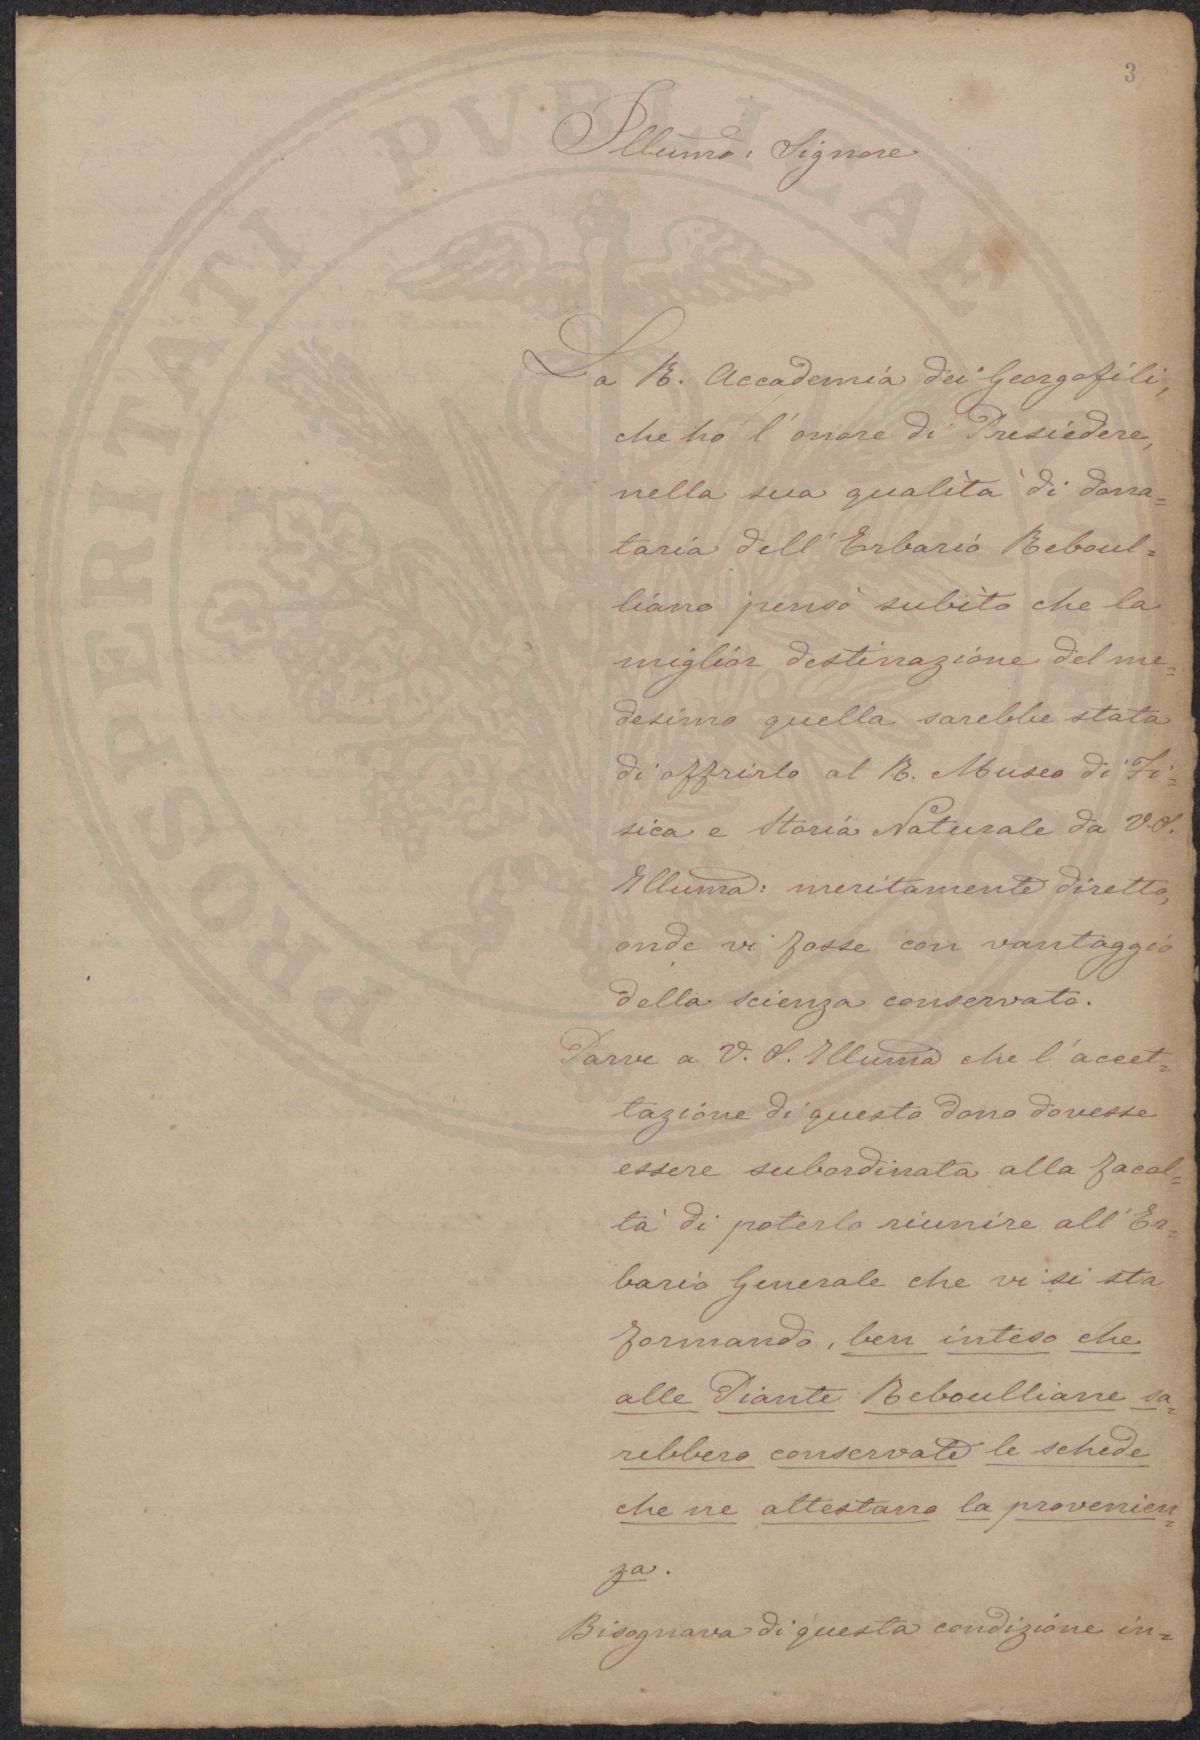 3
Illumo: Signore
La R. Accademia dei Georgofili,
che ho l'onore di Presiedere,
nella sua qualità di dona=
taria dell'Erbario Reboul=
liano pensò subito che la
miglior destinazione del me=
desimo quella sarebbe stata
di offrirlo al R. Museo di Fi=
sica e Storia Naturale da V. S.
Illuma: meritamente diretto,
onde vi fosse con vantaggio
della scienza conservato.
Parve a V. S. Illuma che l'accet=
tazione di questo dono dovesse
essere subordinata alla facol=
tà di poterlo riunire all'Er=
bario Generale che vi si sta
formando, ben inteso che
alle Piante Reboulliane sa=
rebbero conservate le schede
che ne attestano la provenien=
za.
Bisognava di questa condizione in=
PROSPERITATI PVBLICAE